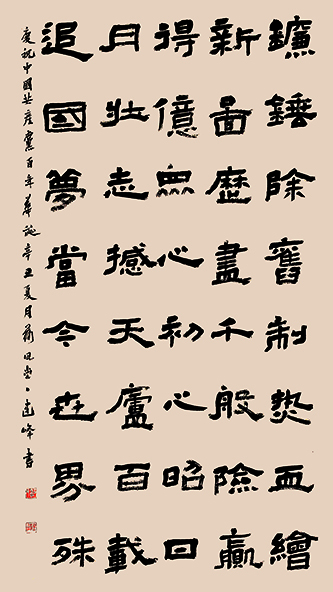 鐮錘除舊制热血繪
新圖歷盡千般險贏
得億眾心初心昭日
月壯志撼天廬百載
追國夢當今世界殊
慶祝中國共產黨百年華誕辛丑夏月達峰書